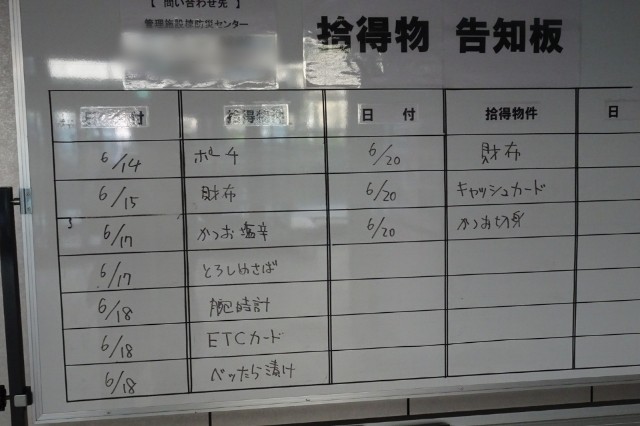 【 問い合わせ先 】
管理施設棟防災センター
拾得物 告知板
日 付 拾得物件 日 付 拾得物件 日
6/14 ポーチ 6/20 財布
6/15 財布 6/20 キャッシュカード
6/17 かつお塩辛 6/20 かつお切身
6/17 とろしめさば
6/18 腕時計
6/18 ETCカード
6/18 べったら漬け